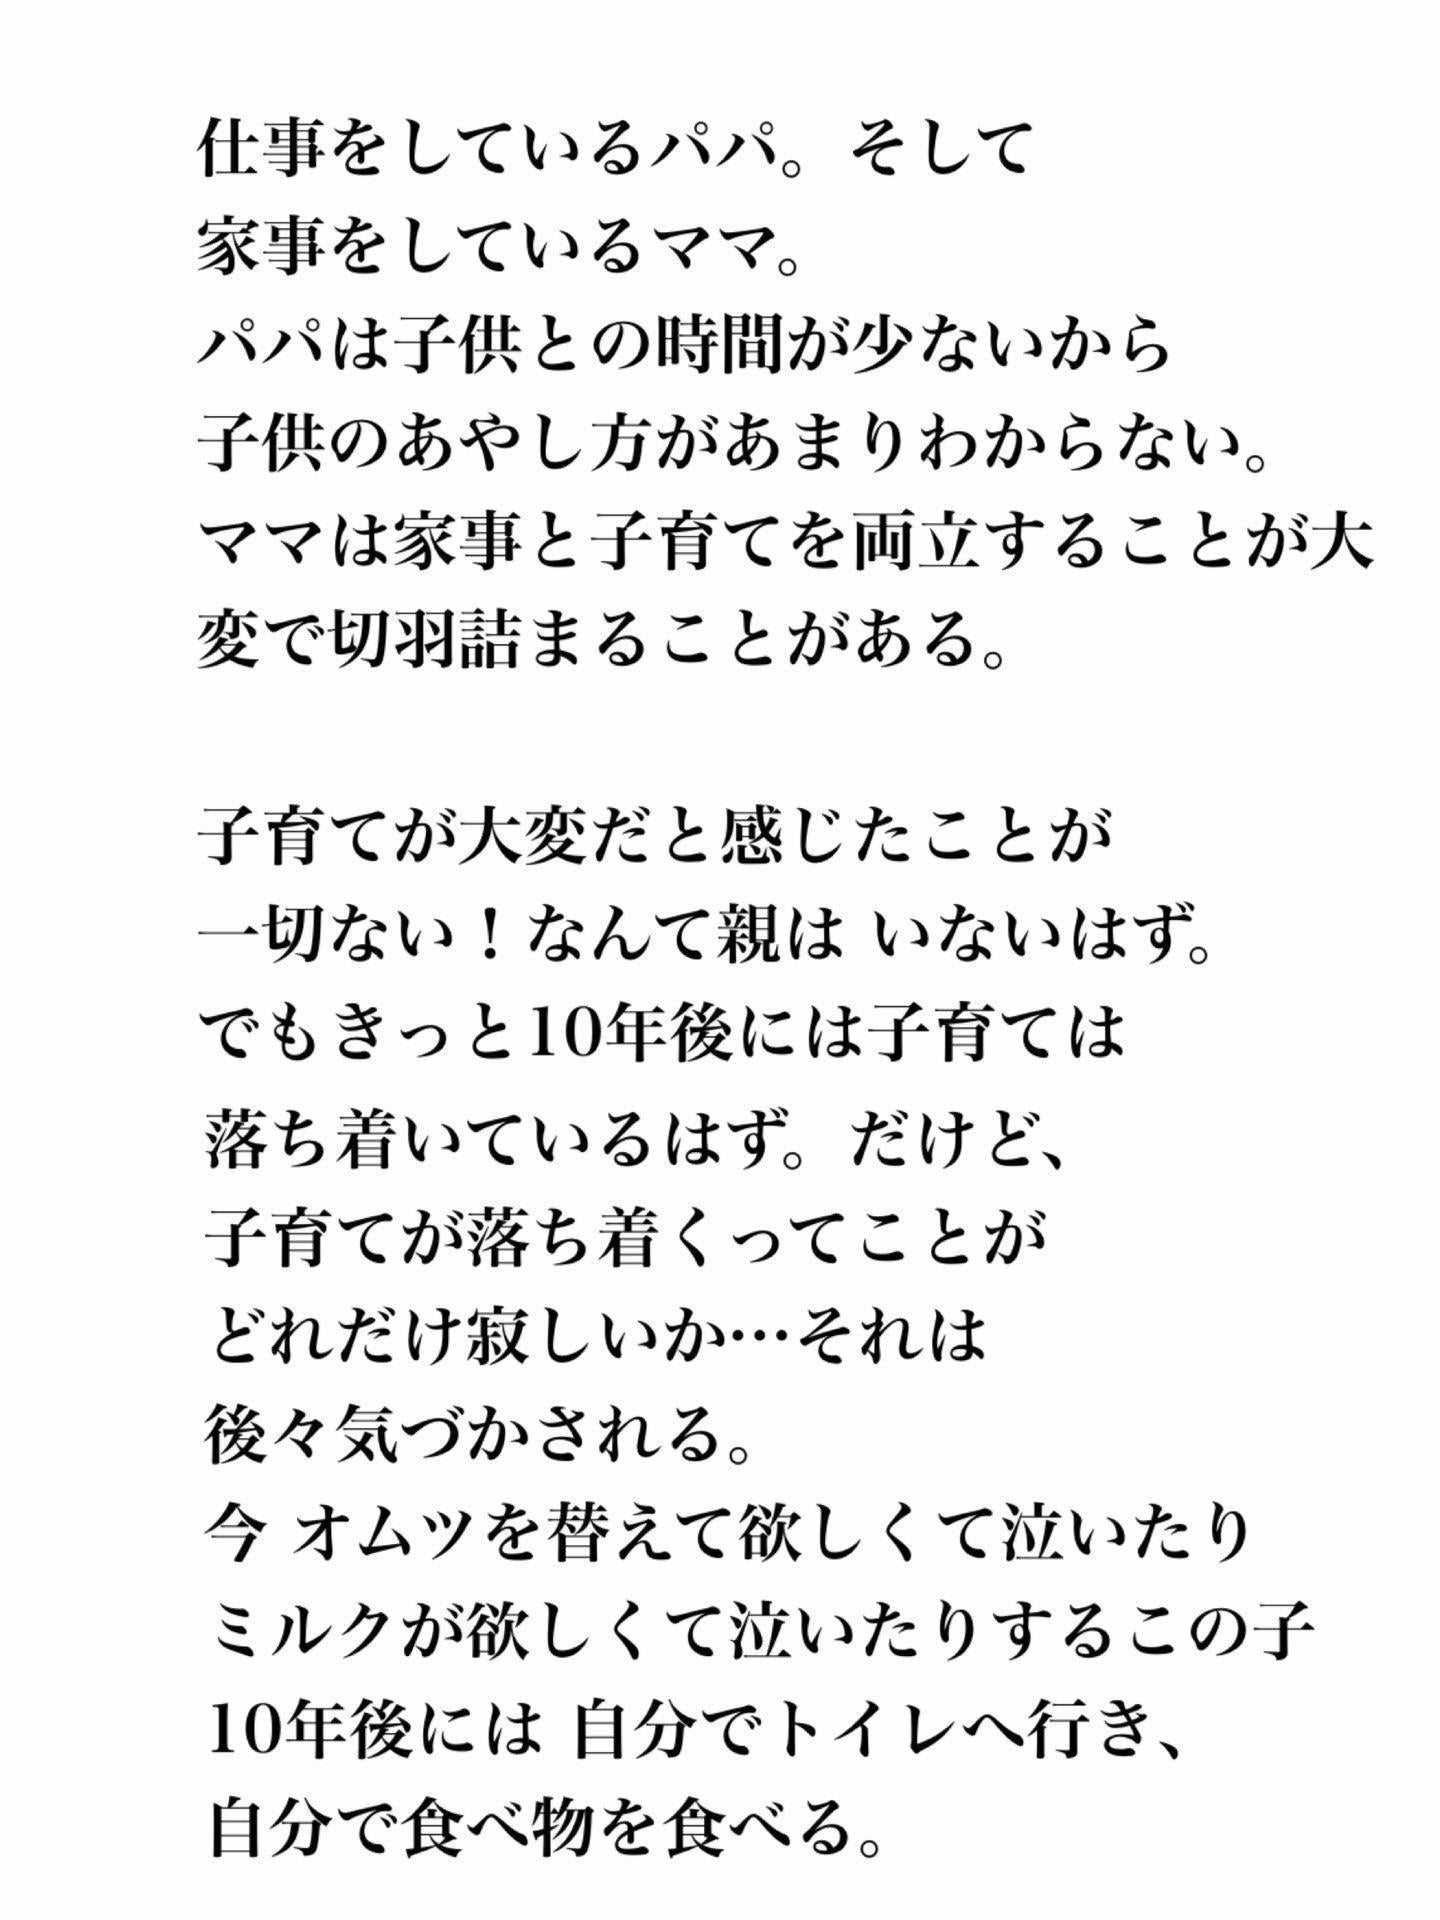 仕事をしているパパ。そして
家事をしているママ。
パパは子供との時間が少ないから
子供のあやし方があまりわからない。
ママは家事と子育てを両立することが大
変で切羽詰まることがある。
子育てが大変だと感じたことが
一切ない！なんて親は いないはず。
でもきっと10年後には子育ては
落ち着いているはず。だけど、
子育てが落ち着くってことが
どれだけ寂しいか…それは
後々気づかされる。
今 オムツを替えて欲しくて泣いたり
ミルクが欲しくて泣いたりするこの子
10年後には 自分でトイレへ行き、
自分で食べ物を食べる。